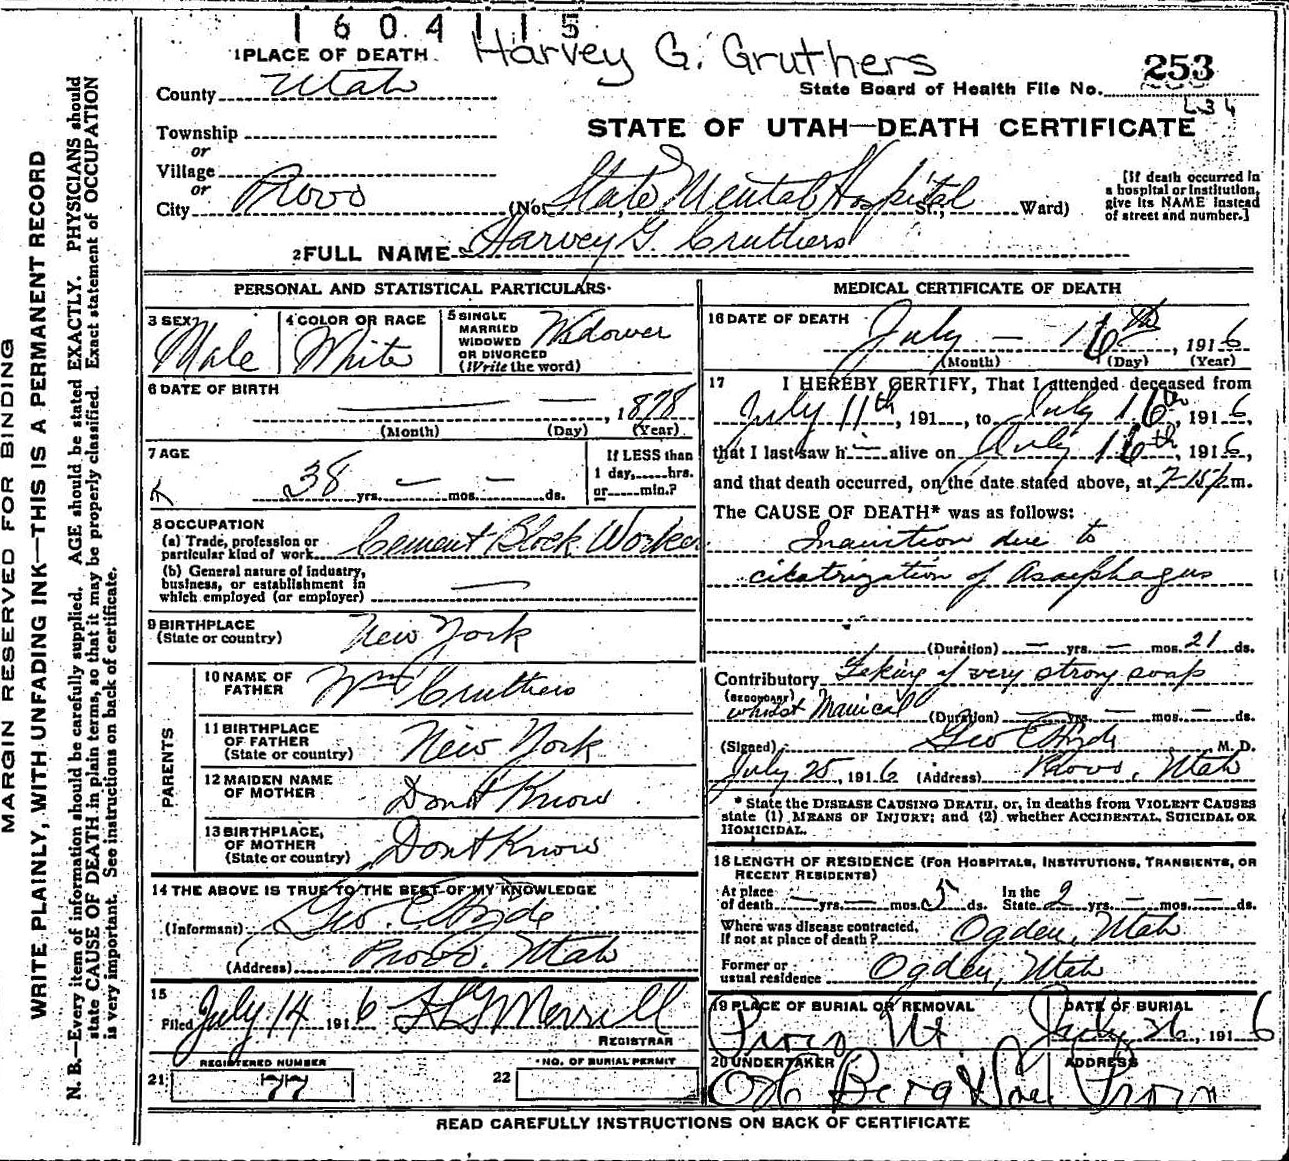 1604115
Harvey G. Gruthers
1 PLACE OF DEATH
County Utah
253
State Board of Health File No.
434
STATE OF UTAH—DEATH CERTIFICATE
Township
or
Village
or
City Provo
(No. State Mental Hospital St., Ward)
[If death occurred in
a hospital or institution,
give its NAME instead
of street and number.]
2 FULL NAME Harvey G. Cruthers
PERSONAL AND STATISTICAL PARTICULARS
3 SEX Male
4 COLOR OR RACE White
5 SINGLE
MARRIED
WIDOWED
OR DIVORCED
(Write the word)
Widower
6 DATE OF BIRTH
— — , 1878
(Month) (Day) (Year)
7 AGE
38 yrs. — mos. — ds.
If LESS than
1 day,......hrs.
or......min.?
8 OCCUPATION
(a) Trade, profession or
particular kind of work Cement Block Worker
(b) General nature of industry,
business, or establishment in
which employed (or employer) —
9 BIRTHPLACE
(State or country) New York
PARENTS
10 NAME OF
FATHER Wm Cruthers
11 BIRTHPLACE
OF FATHER
(State or country) New York
12 MAIDEN NAME
OF MOTHER Dont Know
13 BIRTHPLACE,
OF MOTHER
(State or country) Dont Know
14 THE ABOVE IS TRUE TO THE BEST OF MY KNOWLEDGE
(Informant) Geo. E. Hyde
(Address) Provo, Utah
15
Filed July 14 1916 Merrill
REGISTRAR
REGISTERED NUMBER
21 77
NO. OF BURIAL PERMIT
22
MEDICAL CERTIFICATE OF DEATH
16 DATE OF DEATH
July — 16th, 1916
(Month) (Day) (Year)
17 I HEREBY CERTIFY, That I attended deceased from
July 11th, 191 , to July 16th, 1916,
that I last saw h— alive on July 16th, 1916,
and that death occurred, on the date stated above, at 7-15 p.m.
The CAUSE OF DEATH* was as follows:
Inanition due to
cicatrization of Asoephagus
(Duration) — yrs. — mos. 21 ds.
Contributory Taking of very strong soap
(SECONDARY)
whilst Manical (Duration) — yrs. — mos. — ds.
(Signed) Geo E Hyde M. D.
July 25, 1916 (Address) Provo, Utah
* State the DISEASE CAUSING DEATH, or, in deaths from VIOLENT CAUSES
state (1) MEANS OF INJURY; and (2) whether ACCIDENTAL, SUICIDAL OR
HOMICIDAL.
18 LENGTH OF RESIDENCE (FOR HOSPITALS, INSTITUTIONS, TRANSIENTS, OR
RECENT RESIDENTS)
At place
of death — yrs. — mos. 5 ds.
In the
State 2 yrs. — mos. — ds.
Where was disease contracted,
if not at place of death? Ogden, Utah
Former or
usual residence Ogden, Utah
19 PLACE OF BURIAL OR REMOVAL
Provo Ut
DATE OF BURIAL
July 26, 1916
20 UNDERTAKER
O H Berg & Son
ADDRESS
Provo
READ CAREFULLY INSTRUCTIONS ON BACK OF CERTIFICATE
MARGIN RESERVED FOR BINDING
WRITE PLAINLY, WITH UNFADING INK—THIS IS A PERMANENT RECORD
N. B.—Every item of information should be carefully supplied. AGE should be stated EXACTLY. PHYSICIANS should
state CAUSE OF DEATH in plain terms, so that it may be properly classified. Exact statement of OCCUPATION
is very important. See instructions on back of certificate.